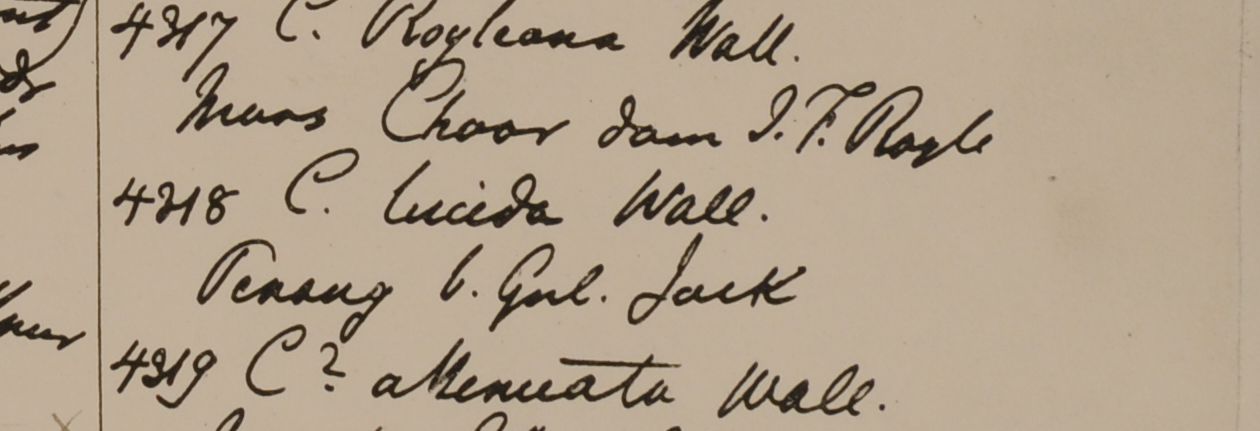 4317 C. Royleana Wall.
Mons Choor dam J. F. Royle
4318 C. lucida Wall.
Penang C. Gul. Jack
4319 C? attenuata Wall.